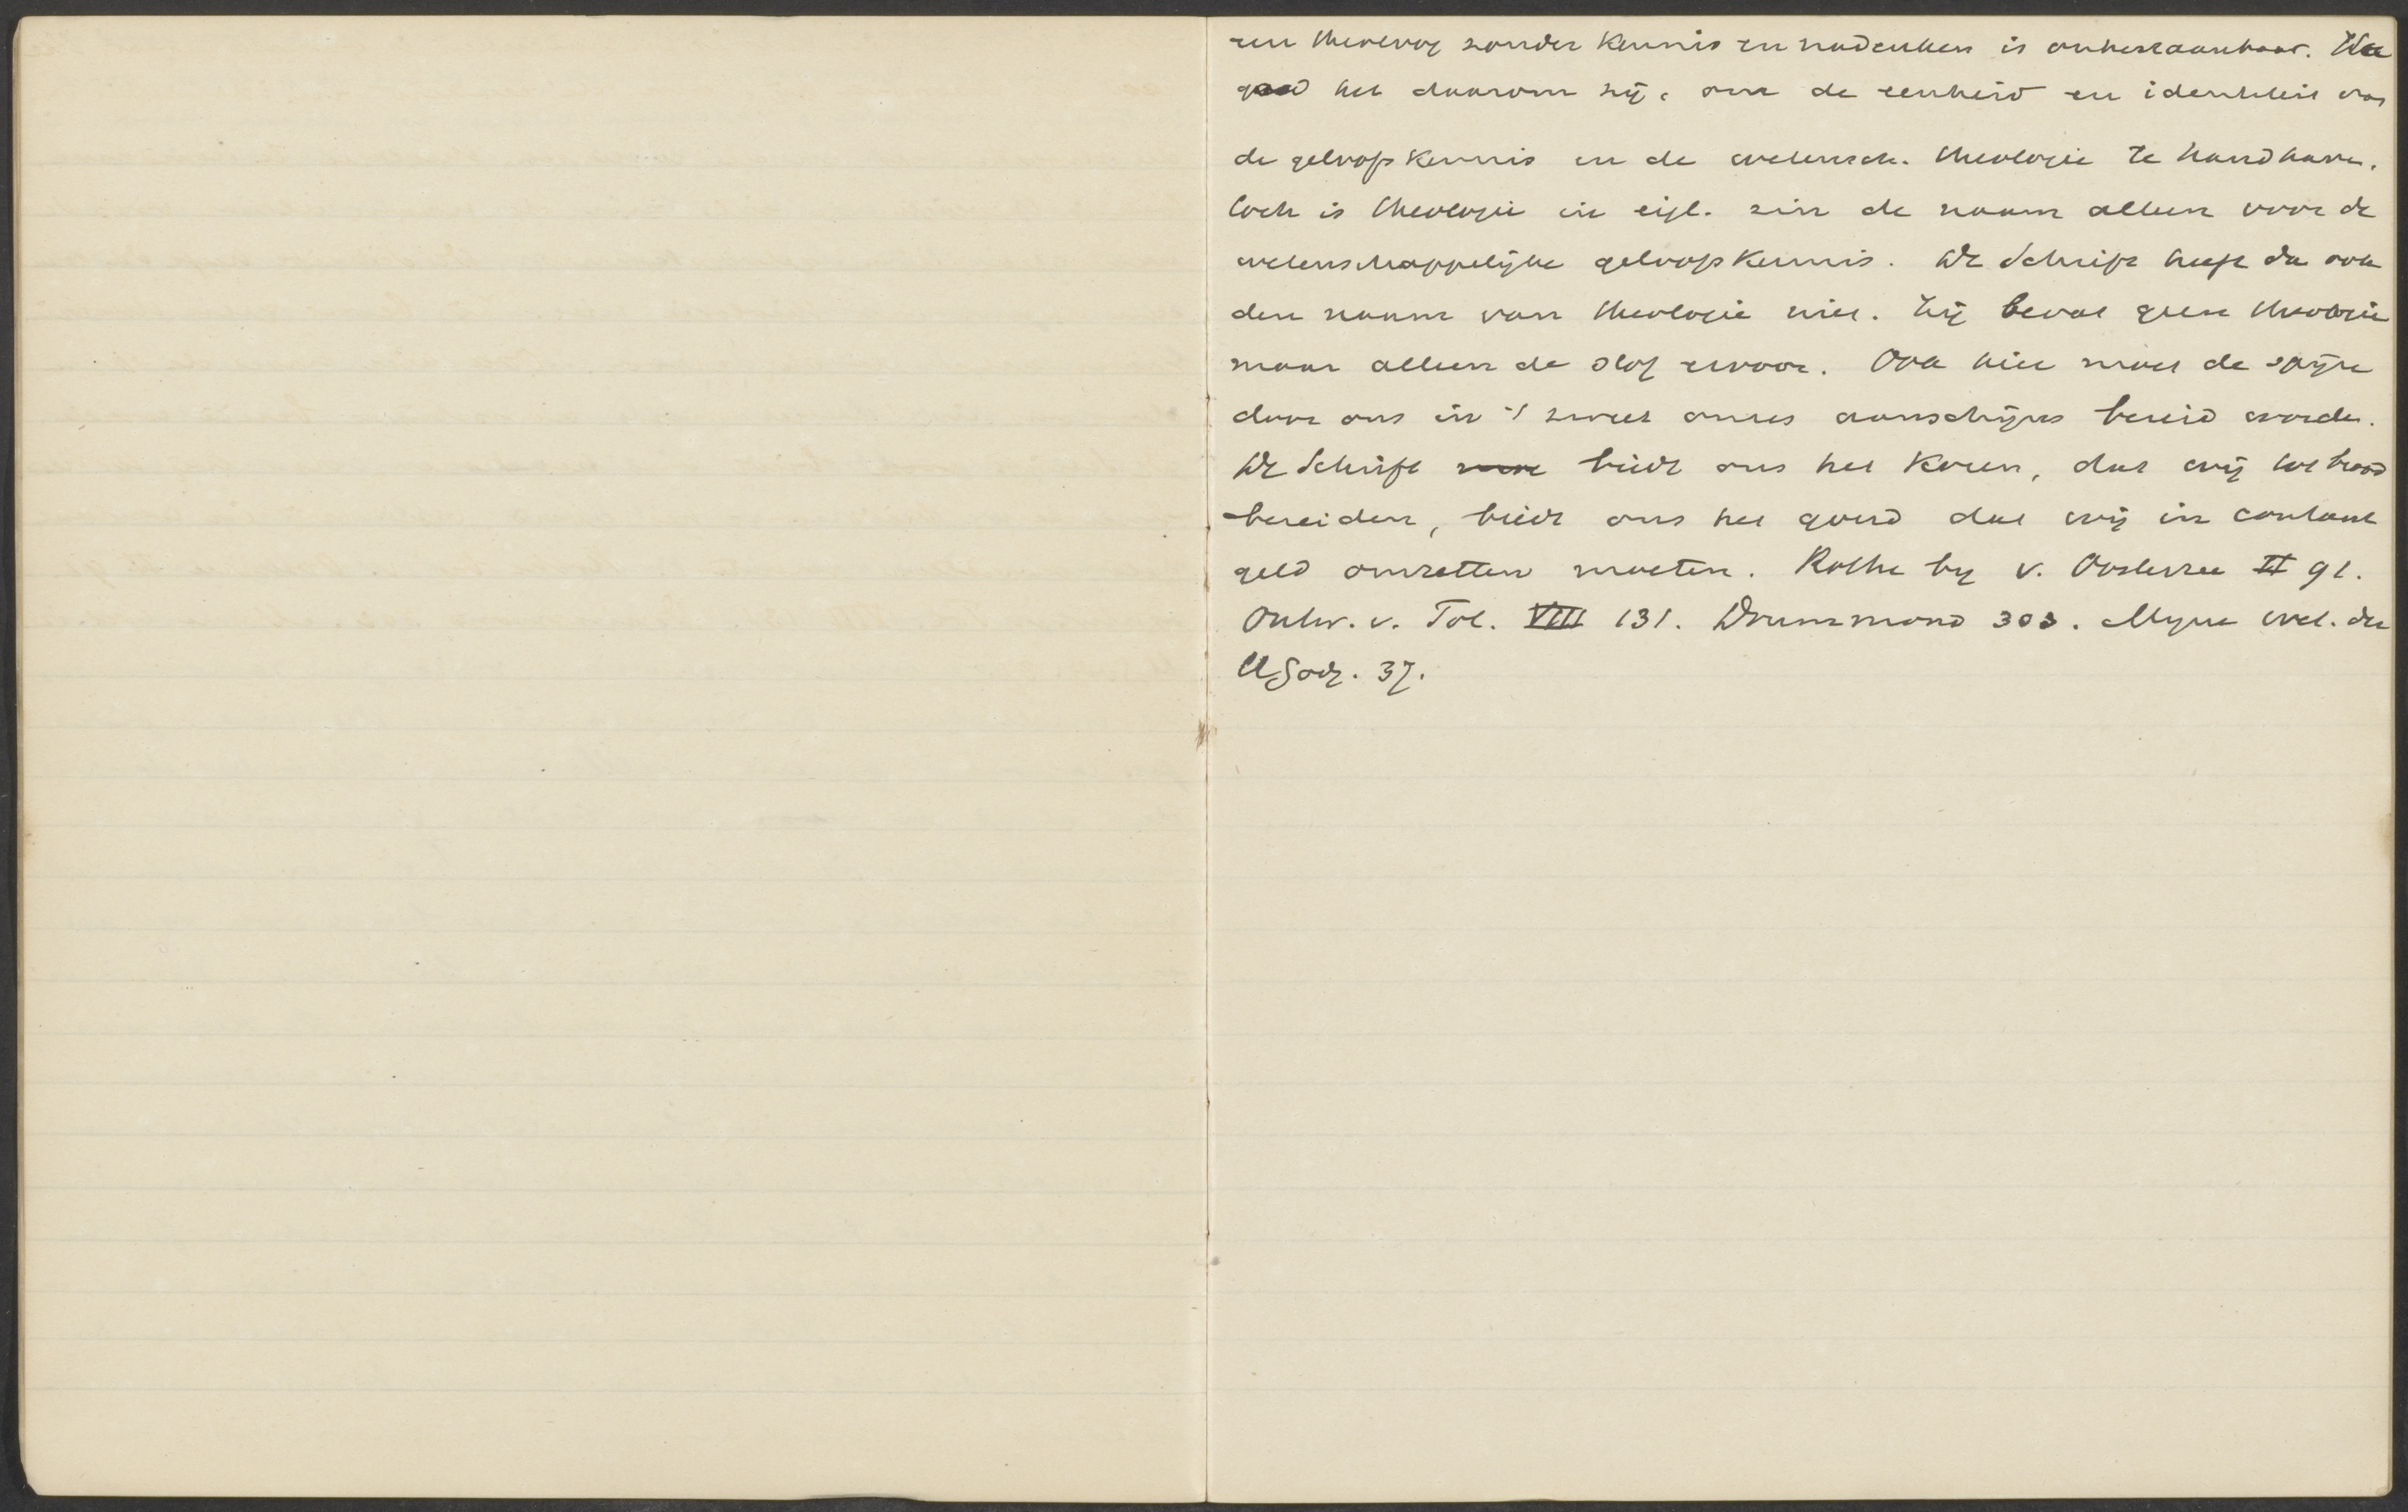 een theoloog zonder kennis en nadenken is onbestaanbaar. Hoe
goed het daarom zij, om de eenheid en identiteit van
de geloofskennis en de wetensch. theologie te handhaven.
toch is theologie in eigl. zin de naam alleen voor de
wetenschappelijke geloofskennis. De Schrift heeft dan ook
den naam van theologie niet. Zij bevat geen theologie
maar alleen de stof ervoor. Ook hier moet de spijze
door ons in 't zweet onzes aanschijns bereid worden.
De Schrift biedt ons het koren, dat wij tot brood
bereiden, biedt ons het goud dat wij in contant
geld omzetten moeten. Rothe by v. Oosterzee II 91.
Ontw. v. Tol. VIII 131. Drummond 303. Myne wet. der
H Godg. 37.